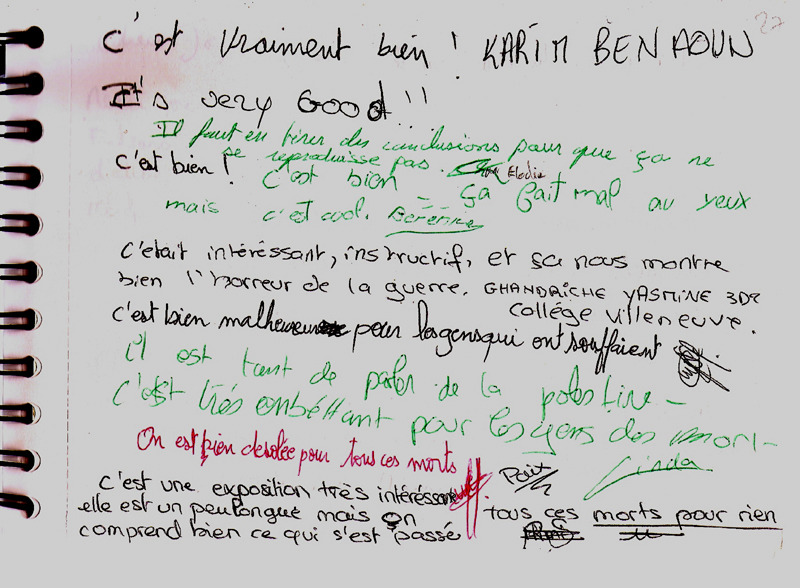 27
C'est vraiment bien ! KARIM BENAOUN
It's very Good !!
Il faut en tirer des conclusions pour que ça ne
se reproduisse pas. Elodie
C'est bien !
C'est bien = ça fait mal au yeux
mais c'est cool. Bérénice
C'était intéréssant, instructif, et sa nous montre
bien l'horreur de la guerre. GHANDRICHE YASMINE 3D2
collége Villeneuve.
C'est bien malheureuse pour les gens qui ont souffaient
Il est tant de parler de la palestine -
C'est très embéttant pour les gens des mort -
Linda
On est bien desolée pour tous ces morts
Paix
C'est une exposition très intéréssante
elle est un peu longue mais on
comprend bien ce qui s'est passé
tous ces morts pour rien